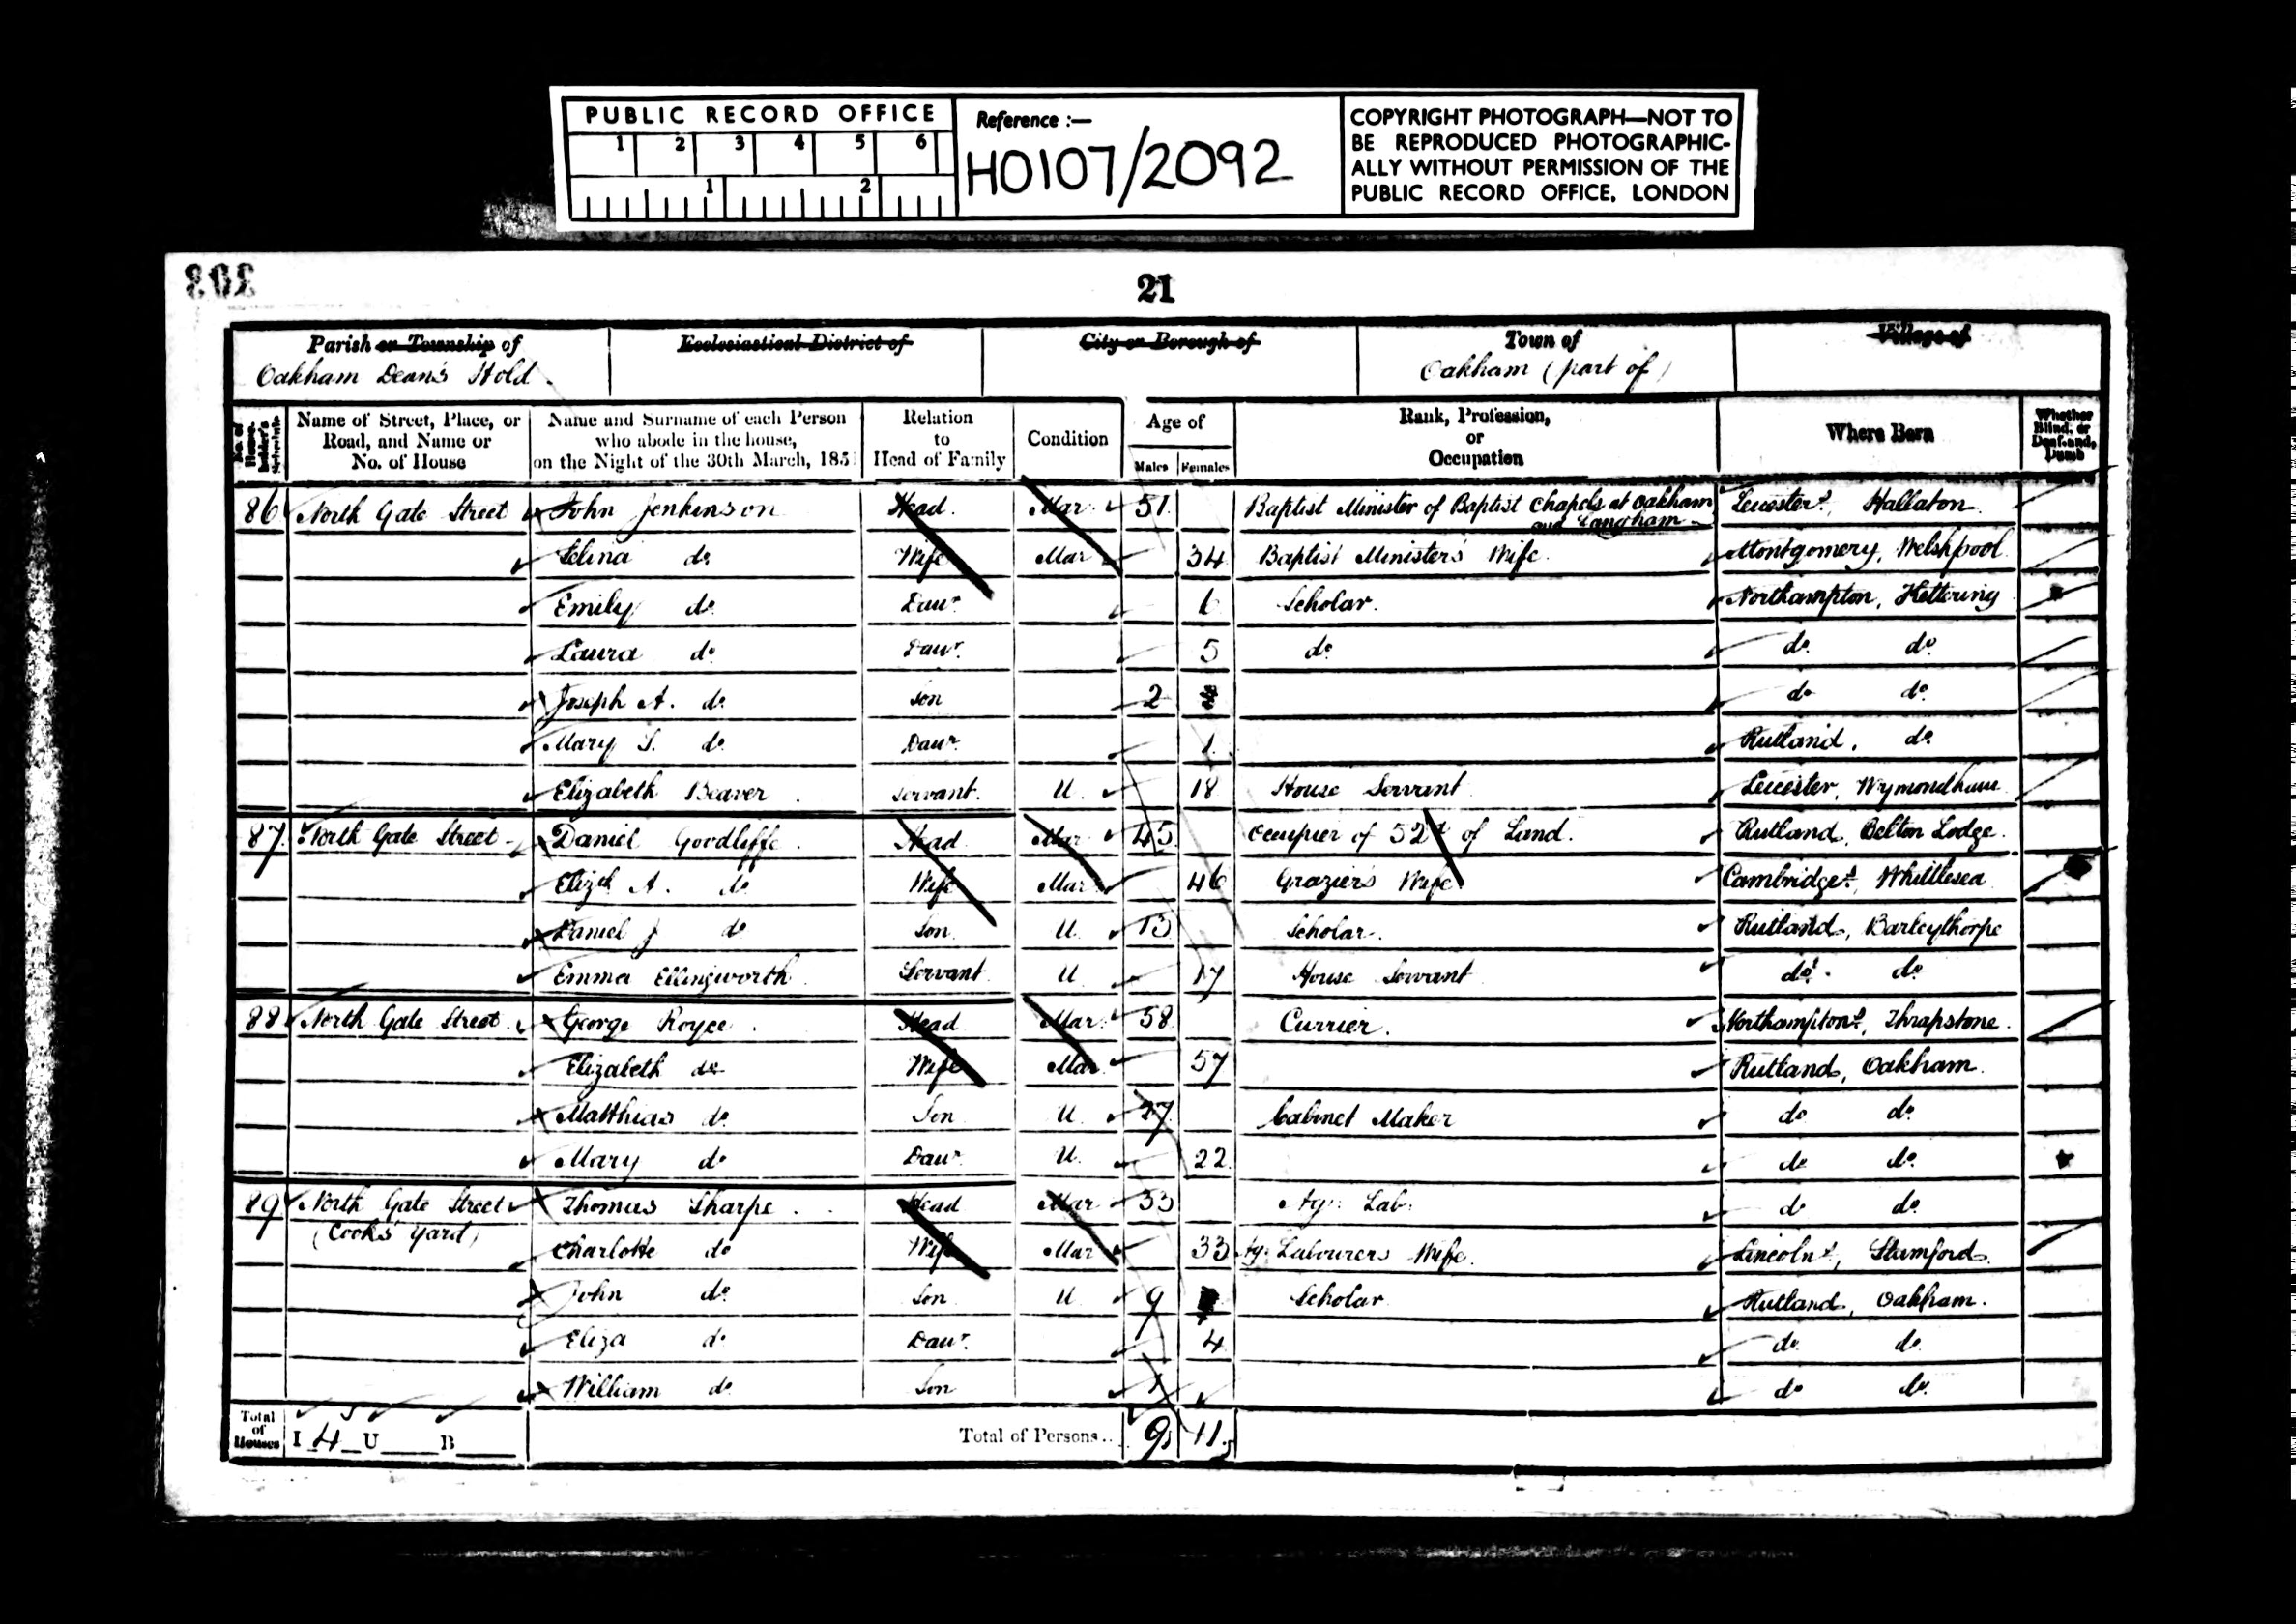 PUBLIC RECORD OFFICE
1 2 3 4 5 6
1 2
Reference :—
HO107/2092
COPYRIGHT PHOTOGRAPH—NOT TO
BE REPRODUCED PHOTOGRAPHIC-
ALLY WITHOUT PERMISSION OF THE
PUBLIC RECORD OFFICE, LONDON
303
21
Parish or Township of
Oakham Deans Hold
Ecclesiastical District of
City or Borough of
Town of
Oakham (part of)
Village of
No. of House-holder's Schedule
Name of Street, Place, or Road, and Name or No. of House
Name and Surname of each Person who abode in the house, on the Night of the 30th March, 185
Relation to Head of Family
Condition
Age of
Males Females
Rank, Profession, or Occupation
Where Born
Whether Blind, or Deaf and Dumb
86 North Gate Street John Jenkinson Head Mar 51 Baptist Minister of Baptist Chapels at Oakham and Langham Leicesterˢ, Hallaton
Selina do Wife Mar 34 Baptist Ministers Wife Montgomery, Welshpool
Emily do Daur 6 Scholar Northampton, Kettering
Laura do Daur 5 do do do
Joseph A. do Son 2 do do
Mary S. do Daur 1 Rutland, do
Elizabeth Beaver Servant U 18 House Servant Leicester, Wymondham
87 North Gate Street Daniel Goodliffe Head Mar 45 Occupier of 52 of Land. Rutland, Belton Lodge
Elizth A. do Wife Mar 46 Graziers Wife Cambridgeˢ, Whittlesea
Daniel J do Son U 13 Scholar Rutland, Barleythorpe
Emma Ellingworth Servant U 17 House Servant do do
88 North Gate Street George Royce Head Mar 58 Currier. Northamptonˢ, Thrapstone
Elizabeth do Wife Mar 57 Rutland, Oakham
Matthias do Son U 27 Cabinet Maker do do
Mary do Daur U 22 do do
89 North Gate Street Thomas Sharpe Head Mar 53 Ag: Lab: do do
(Cook's Yard) Charlotte do Wife Mar 33 Ag: Labourers Wife Lincolnˢ, Stamford
John do Son U 9 Scholar Rutland, Oakham
Eliza do Daur 4 do do
William do Son 1 do do
Total of Houses I 4 U B Total of Persons.. 9 11